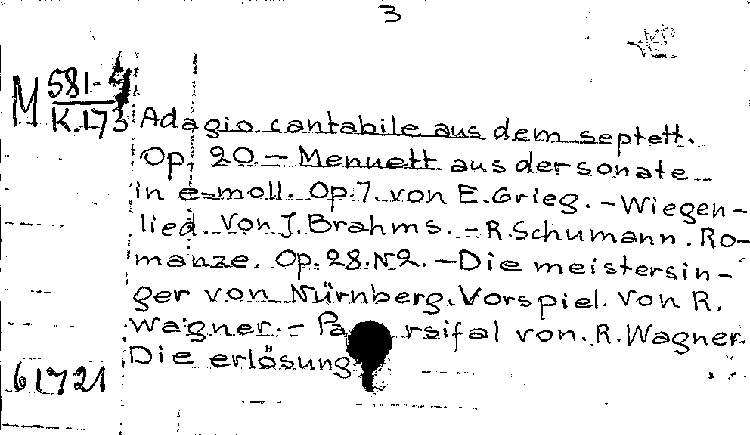 3
M 581-4
K.173
Adagio cantabile aus dem septett.
Op. 20 - Menuett aus der sonate
in e-moll. Op.7. von E.Grieg. - Wiegen-
lied. Von J.Brahms. - R.Schumann. Ro-
manze. Op.28.N2. - Die meistersin-
ger von Nürnberg. Vorspiel. Von R.
Wagner. - Parsifal von R.Wagner.
Die erlösung
61721